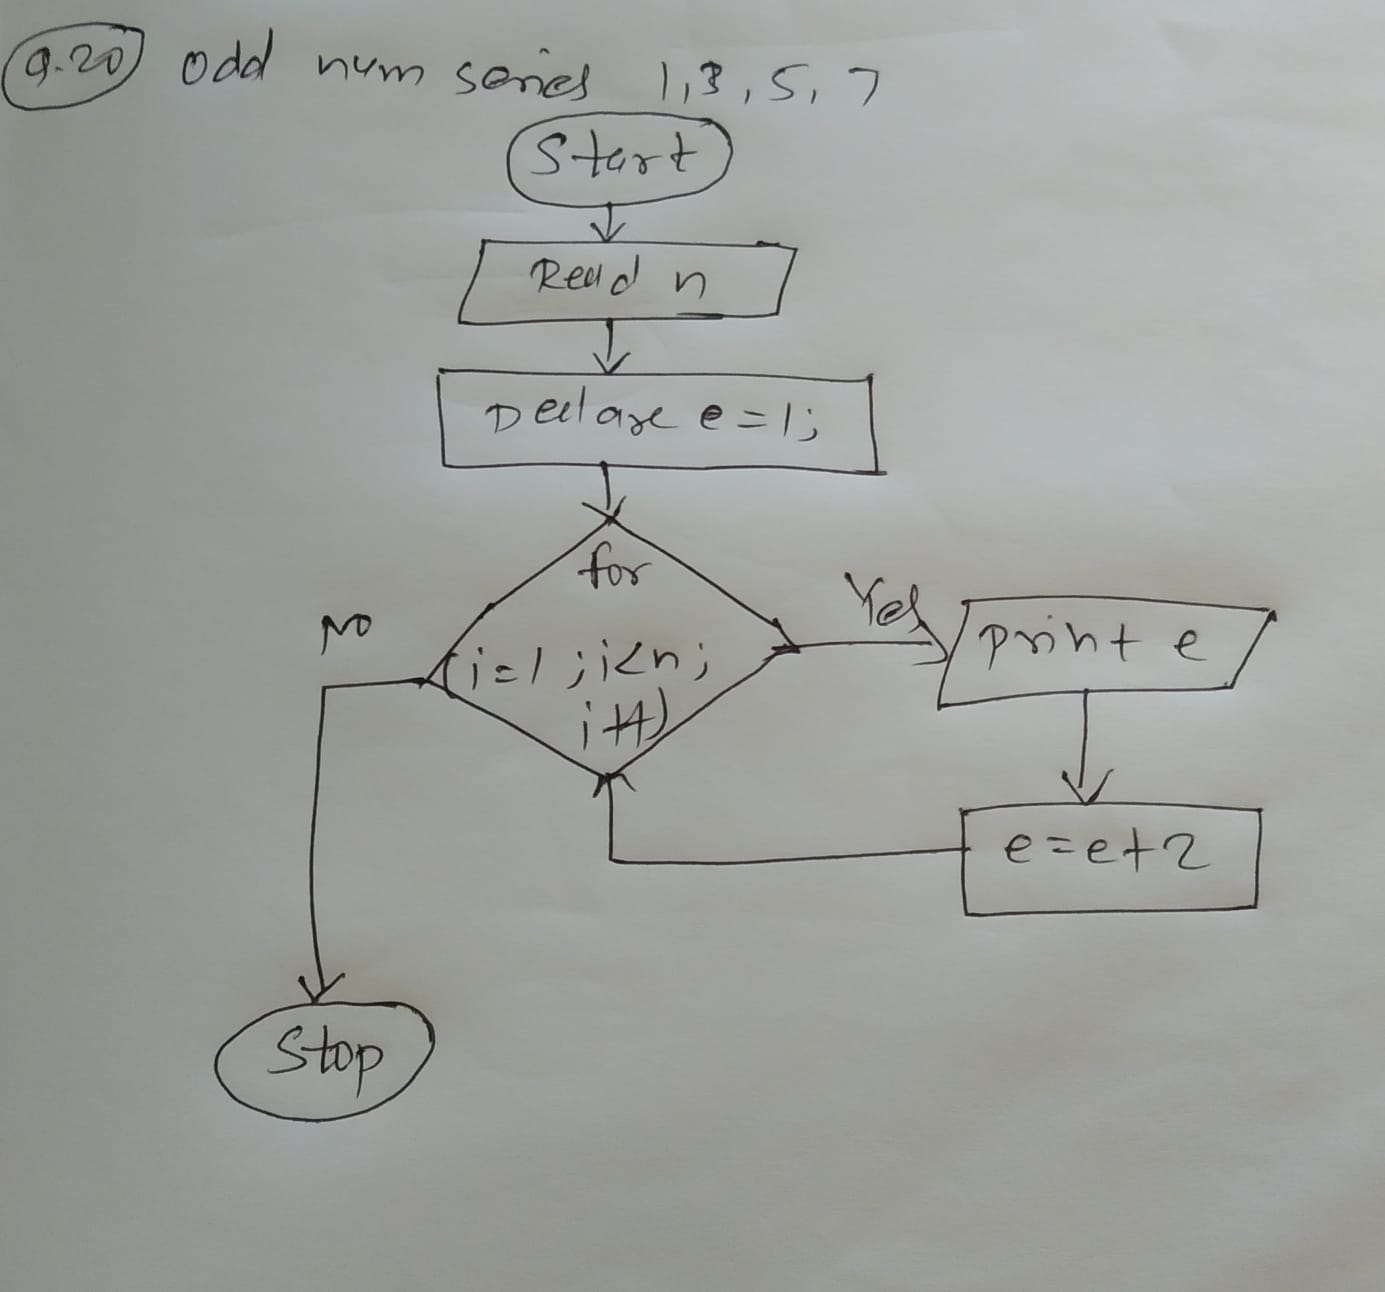 Q.20 odd num series 1,3,5,7
Start
Read n
Declare e=1;
for
(i=1 ;i<n;
i++)
No
Yes
print e
e=e+2
Stop